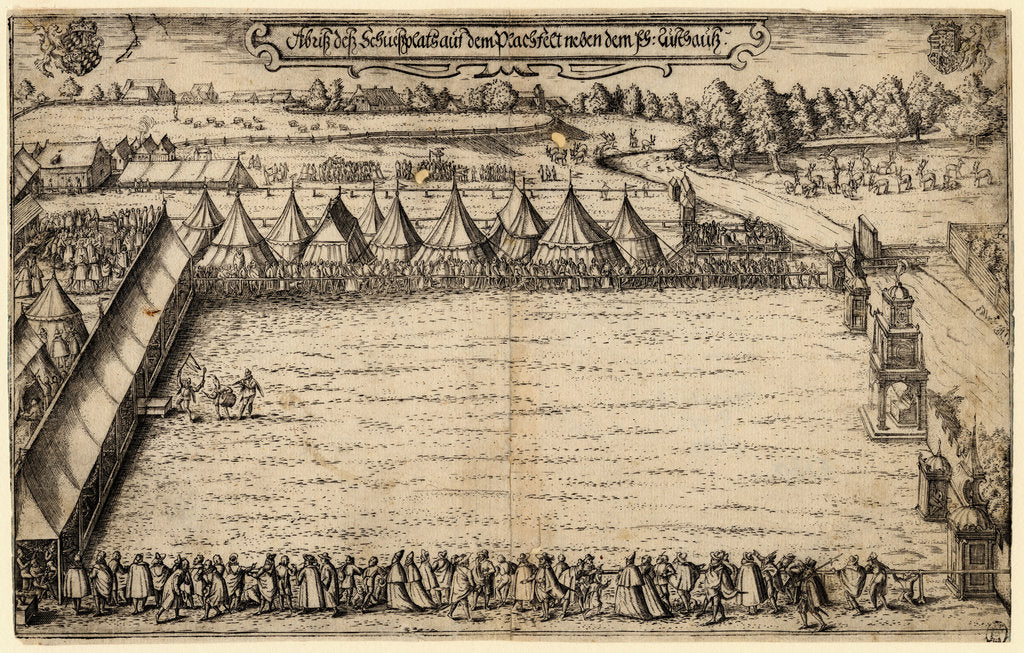 Abriß deß Schießplats auf dem Plachfelt neben dem Fs: Lusthauß